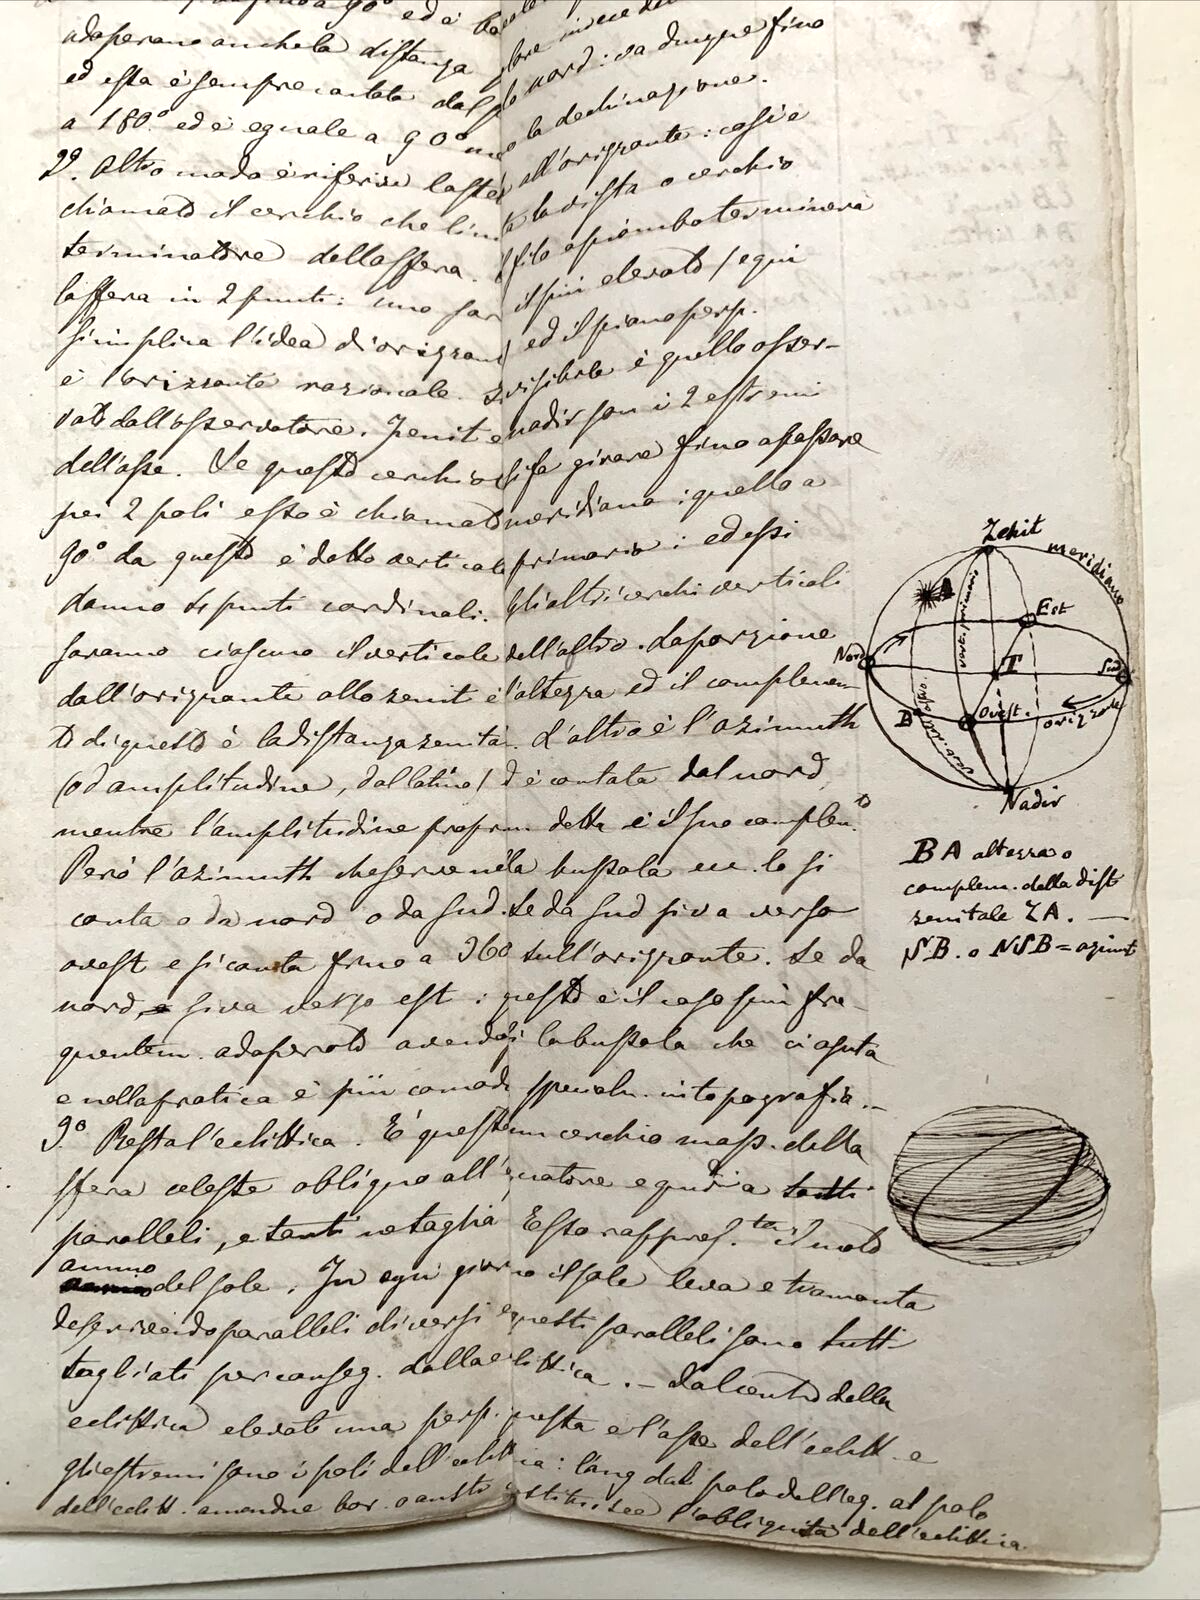 a 90° ed è
adoperano anche la distanza
ed essa è sempre contata dal nord: va dunque fino
a 180° ed è eguale a 90° la declinazione.
2°. Altro modo è riferire all'orizzonte: così è
chiamato il cerchio che la vista o cerchio
terminatore della sfera. filo a piombo terminerà
la sfera in 2 punti: uno il più elevato / e qui
s'implica l'idea di orizzont ed il piano perp.
è l'orizzonte razionale. visibile è quello osser-
vato dall'osservatore. Zenit e nadir son i 2 estremi
dell'asse. Se questo cerchio si fa girare fino a passare
pei 2 poli esso è chiamato meridiano: quello a
90° da questo è detto verticale primario: ed essi
danno i punti cardinali. Gli altri cerchi verticali
saranno ciascuno il verticale dell'astro. La porzione
dall'orizzonte allo zenit è l'altezza ed il complemen-
to di questo è la distanza zenita. L'altro è l'azimuth
(od amplitudine, dal latino) ed è contata dal nord,
mentre l'amplitudine propram detta è il suo complem.to
Però l'azimuth che serve nella bussola ecc. lo si
conta o da nord o da sud. Se da sud si va verso
ovest e si conta fino a 360 sull'orizzonte. Se da
nord, si va verso est: questo è il caso più fre-
quentem. adoperato avendosi la bussola che ci ajuta
e nella pratica è più comodo specialm. in topografia.-
3° Resta l'eclittica. È questa un cerchio mass. della
sfera celeste obliquo all'equatore e quindi a tutti i
paralleli, e tanti ne taglia. Esso rappres.ta il moto
annuo del sole. In ogni giorno il sole leva e tramonta
descrivendo paralleli diversi e questi paralleli sono tutti
tagliati per conseg. dalla eclittica. - Dal centro della
eclittica elevate una perp. questa è l'asse dell'eclitt. e
gli estremi sono i poli dell'eclittica: l'ang dal polo dell'eq. al polo
dell'eclitt. amendue bor. o austr. costituisce l'obliquità dell'eclittica
Zenit
meridiano
A
vert. primar.
Est
Nord
T
Sud
B
Ovest.
orizzonte
Nadir
BA altezza o
complem. della dist
zenitale ZA. —
SB. o NSB = azimut